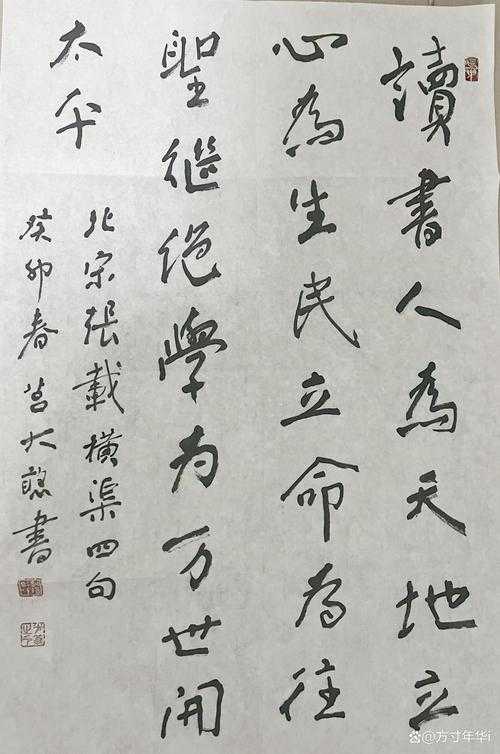 讀書人為天地立
心為生民立命為往
聖繼絕學为万世開
太平
北宋張載橫渠四句
癸卯春莒大憨書
@方寸年华i